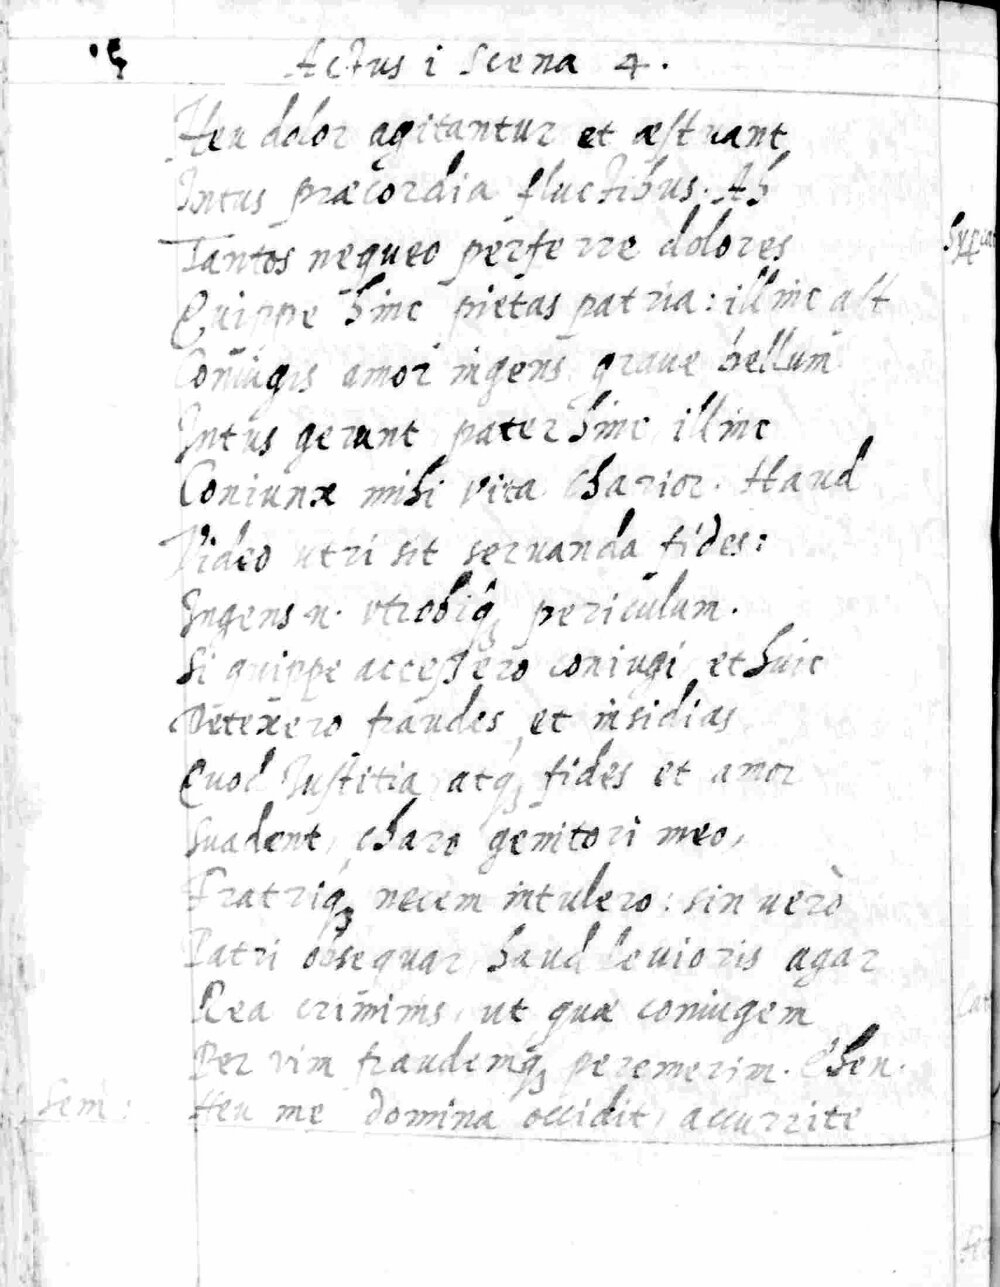 Actus i Scena 4.
Heu dolor agitantur et æstuant
Intus præcordia fluctibus. Ah
Tantos nequeo perferre dolores
Quippe hinc pietas patria: illinc ast
Coniugis amor ingens graue bellum
Intus gerunt, pater hinc, illinc
Coniunx mihi vita charior. Haud
Video utri sit seruanda fides:
Ingens n. vtrobiq; periculum.
Si quippe accessero coniugi, et huic
Detexero fraudes, et insidias
Quod Iustitia, atq; fides et amor
Suadent, charo genitori meo,
Fratriq; necem intulero: sin uerò
Patri obsequar, haud leuioris agar
Rea criminis, ut quæ coniugem
Per vim fraudemq; peremerim. Eheu.
Sem: Heu me domina occidit, accurrite